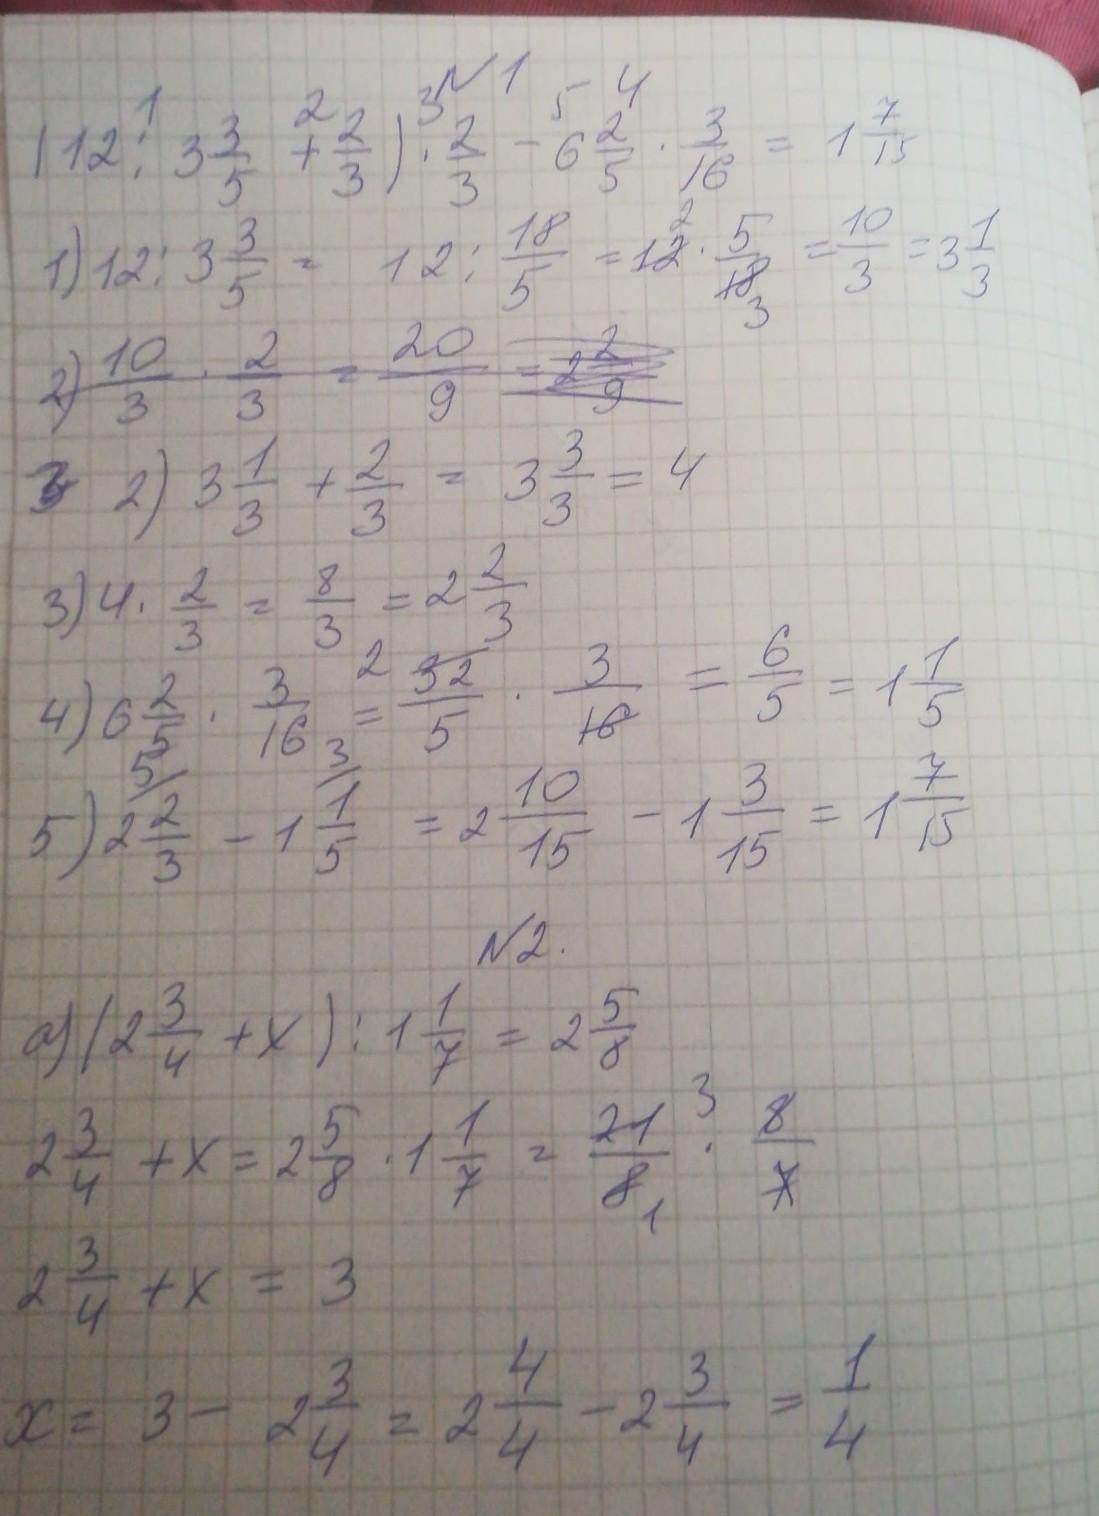 №1
(12 : 3 3/5 + 2/3) · 2/3 - 6 2/5 · 3/16 = 1 7/15
1) 12 : 3 3/5 = 12 : 18/5 = 12 · 5/18 = 10/3 = 3 1/3
2) 10/3 · 2/3 = 20/9 = 2 2/9
2) 3 1/3 + 2/3 = 3 3/3 = 4
3) 4 · 2/3 = 8/3 = 2 2/3
4) 6 2/5 · 3/16 = 32/5 · 3/16 = 6/5 = 1 1/5
5) 2 2/3 - 1 1/5 = 2 10/15 - 1 3/15 = 1 7/15
№2.
а) (2 3/4 + x) : 1 1/7 = 2 5/8
2 3/4 + x = 2 5/8 · 1 1/7 = 21/8 · 8/7
2 3/4 + x = 3
x = 3 - 2 3/4 = 2 4/4 - 2 3/4 = 1/4